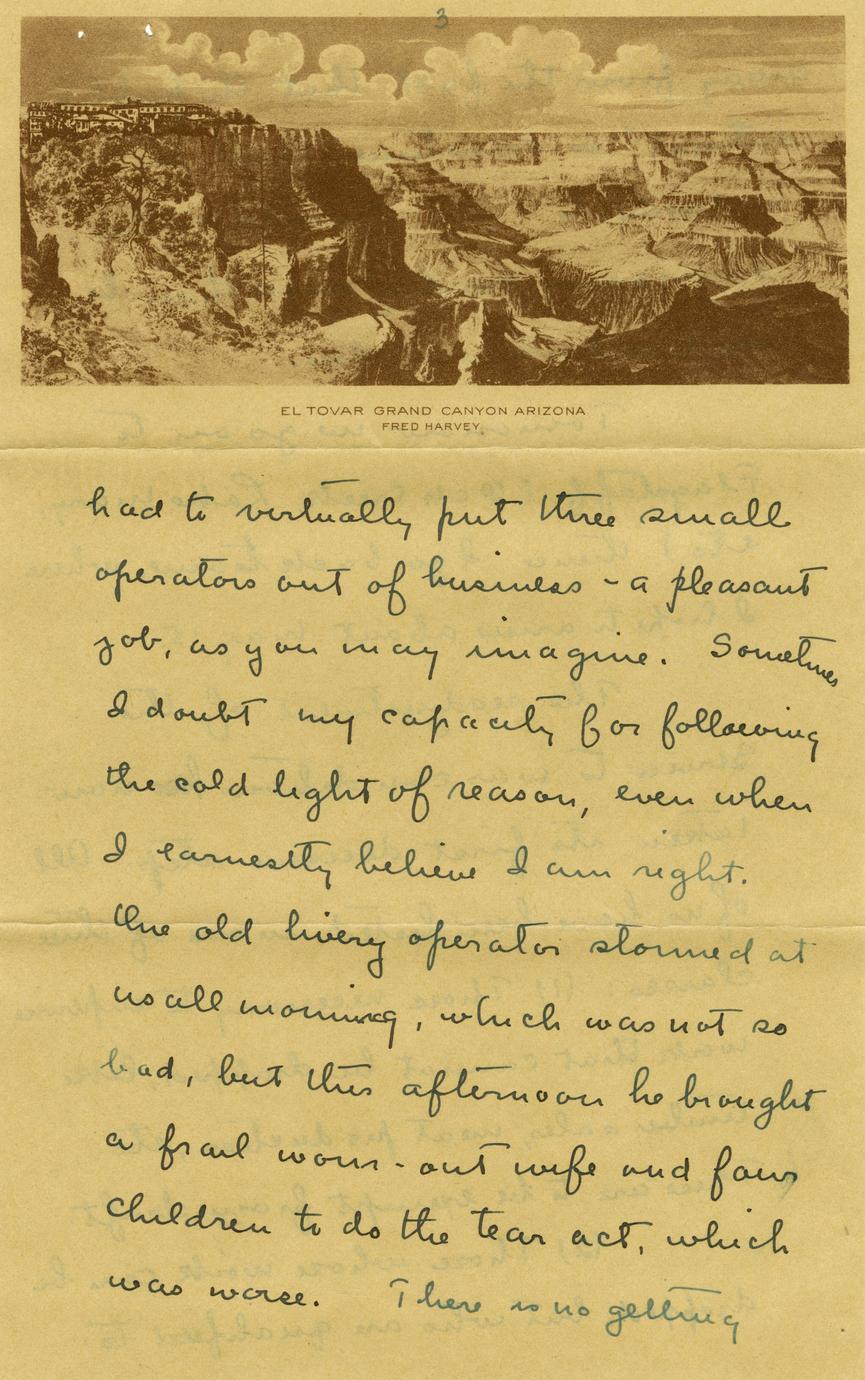 3
EL TOVAR GRAND CANYON ARIZONA
FRED HARVEY
had to virtually put three small
operators out of business - a pleasant
job, as you may imagine. Sometimes
I doubt my capacity for following
the cold light of reason, even when
I earnestly believe I am right.
One old livery operator stormed at
us all morning, which was not so
bad, but this afternoon he brought
a frail worn-out wife and four
children to do the tear act, which
was worse. There is no getting